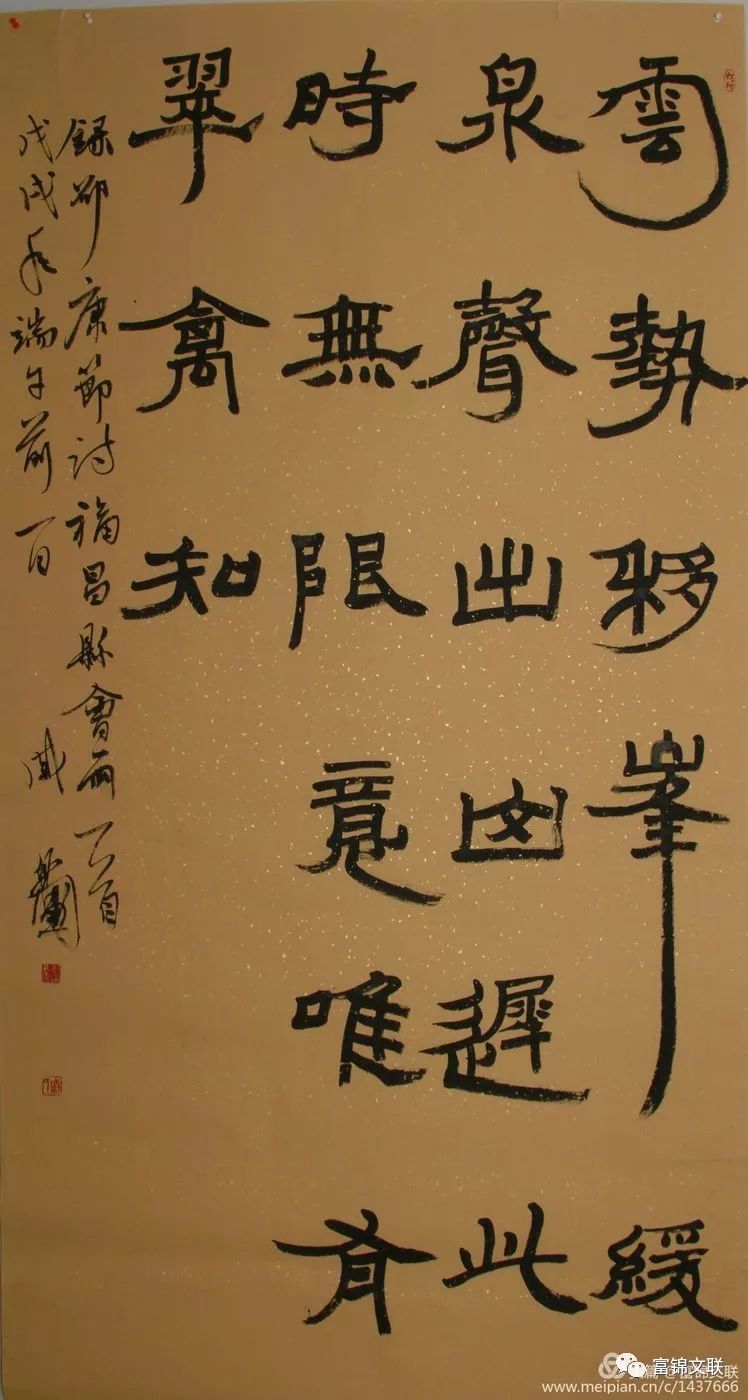 雲勢移峯緩
泉聲出遲此
時無限竟唯有
翠禽知
録邵康節詩福昌縣會雨一首
戊戌年端午前一日 戚
富锦文联
www.meipian.cn/c/1437666